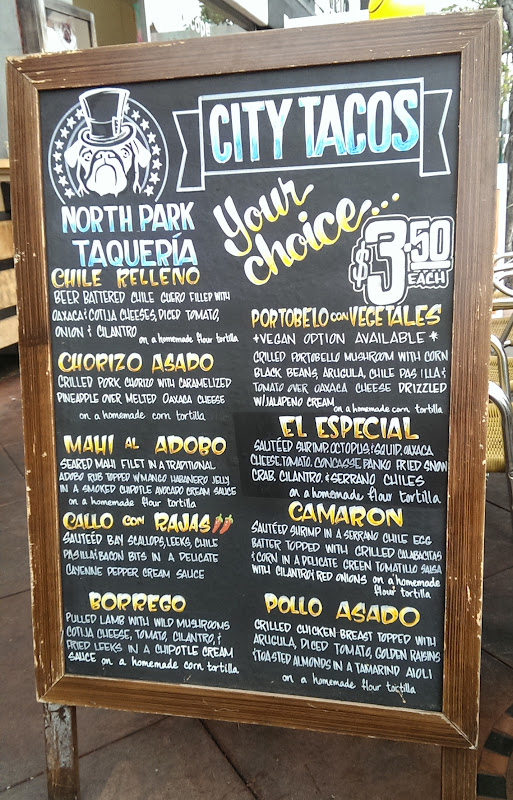 CITY TACOS
NORTH PARK
TAQUERÍA
Your
choice...
$3.50
EACH
CHILE RELLENO
BEER BATTERED CHILE GUERO FILLED WITH
OAXACA & COTIJA CHEESES, DICED TOMATO,
ONION & CILANTRO
on a homemade flour tortilla
CHORIZO ASADO
GRILLED PORK CHORIZO WITH CARAMELIZED
PINEAPPLE OVER MELTED OAXACA CHEESE
on a homemade corn tortilla
MAHI AL ADOBO
SEARED MAHI FILET IN A TRADITIONAL
ADOBO RUB TOPPED W/MANGO HABANERO JELLY
IN A SMOKED CHIPOTLE AVOCADO CREAM SAUCE
on a homemade flour tortilla
CALLO CON RAJAS
SAUTÉED BAY SCALLOPS, LEEKS, CHILE
PASILLA & BACON BITS IN A DELICATE
CAYENNE PEPPER CREAM SAUCE
BORREGO
PULLED LAMB WITH WILD MUSHROOMS
COTIJA CHEESE, TOMATO, CILANTRO, &
FRIED LEEKS IN A CHIPOTLE CREAM
SAUCE on a homemade corn tortilla
PORTOBELO CON VEGETALES
*VEGAN OPTION AVAILABLE*
GRILLED PORTOBELLO MUSHROOM WITH CORN
BLACK BEANS, ARUGULA, CHILE PASILLA &
TOMATO OVER OAXACA CHEESE DRIZZLED
W/JALAPENO CREAM
on a homemade corn tortilla
EL ESPECIAL
SAUTÉED SHRIMP, OCTOPUS, & SQUID, OAXACA
CHEESE, TOMATO, CONCASSE PANKO FRIED SNOW
CRAB, CILANTRO, & SERRANO CHILES
on a homemade flour tortilla
CAMARON
SAUTÉED SHRIMP IN A SERRANO CHILE EGG
BATTER TOPPED WITH GRILLED CALABACITAS
& CORN IN A DELICATE GREEN TOMATILLO SALSA
WITH CILANTRO & RED ONIONS on a homemade
flour tortilla
POLLO ASADO
GRILLED CHICKEN BREAST TOPPED WITH
ARUGULA, DICED TOMATO, GOLDEN RAISINS
& TOASTED ALMONDS IN A TAMARIND AIOLI
on a homemade flour tortilla